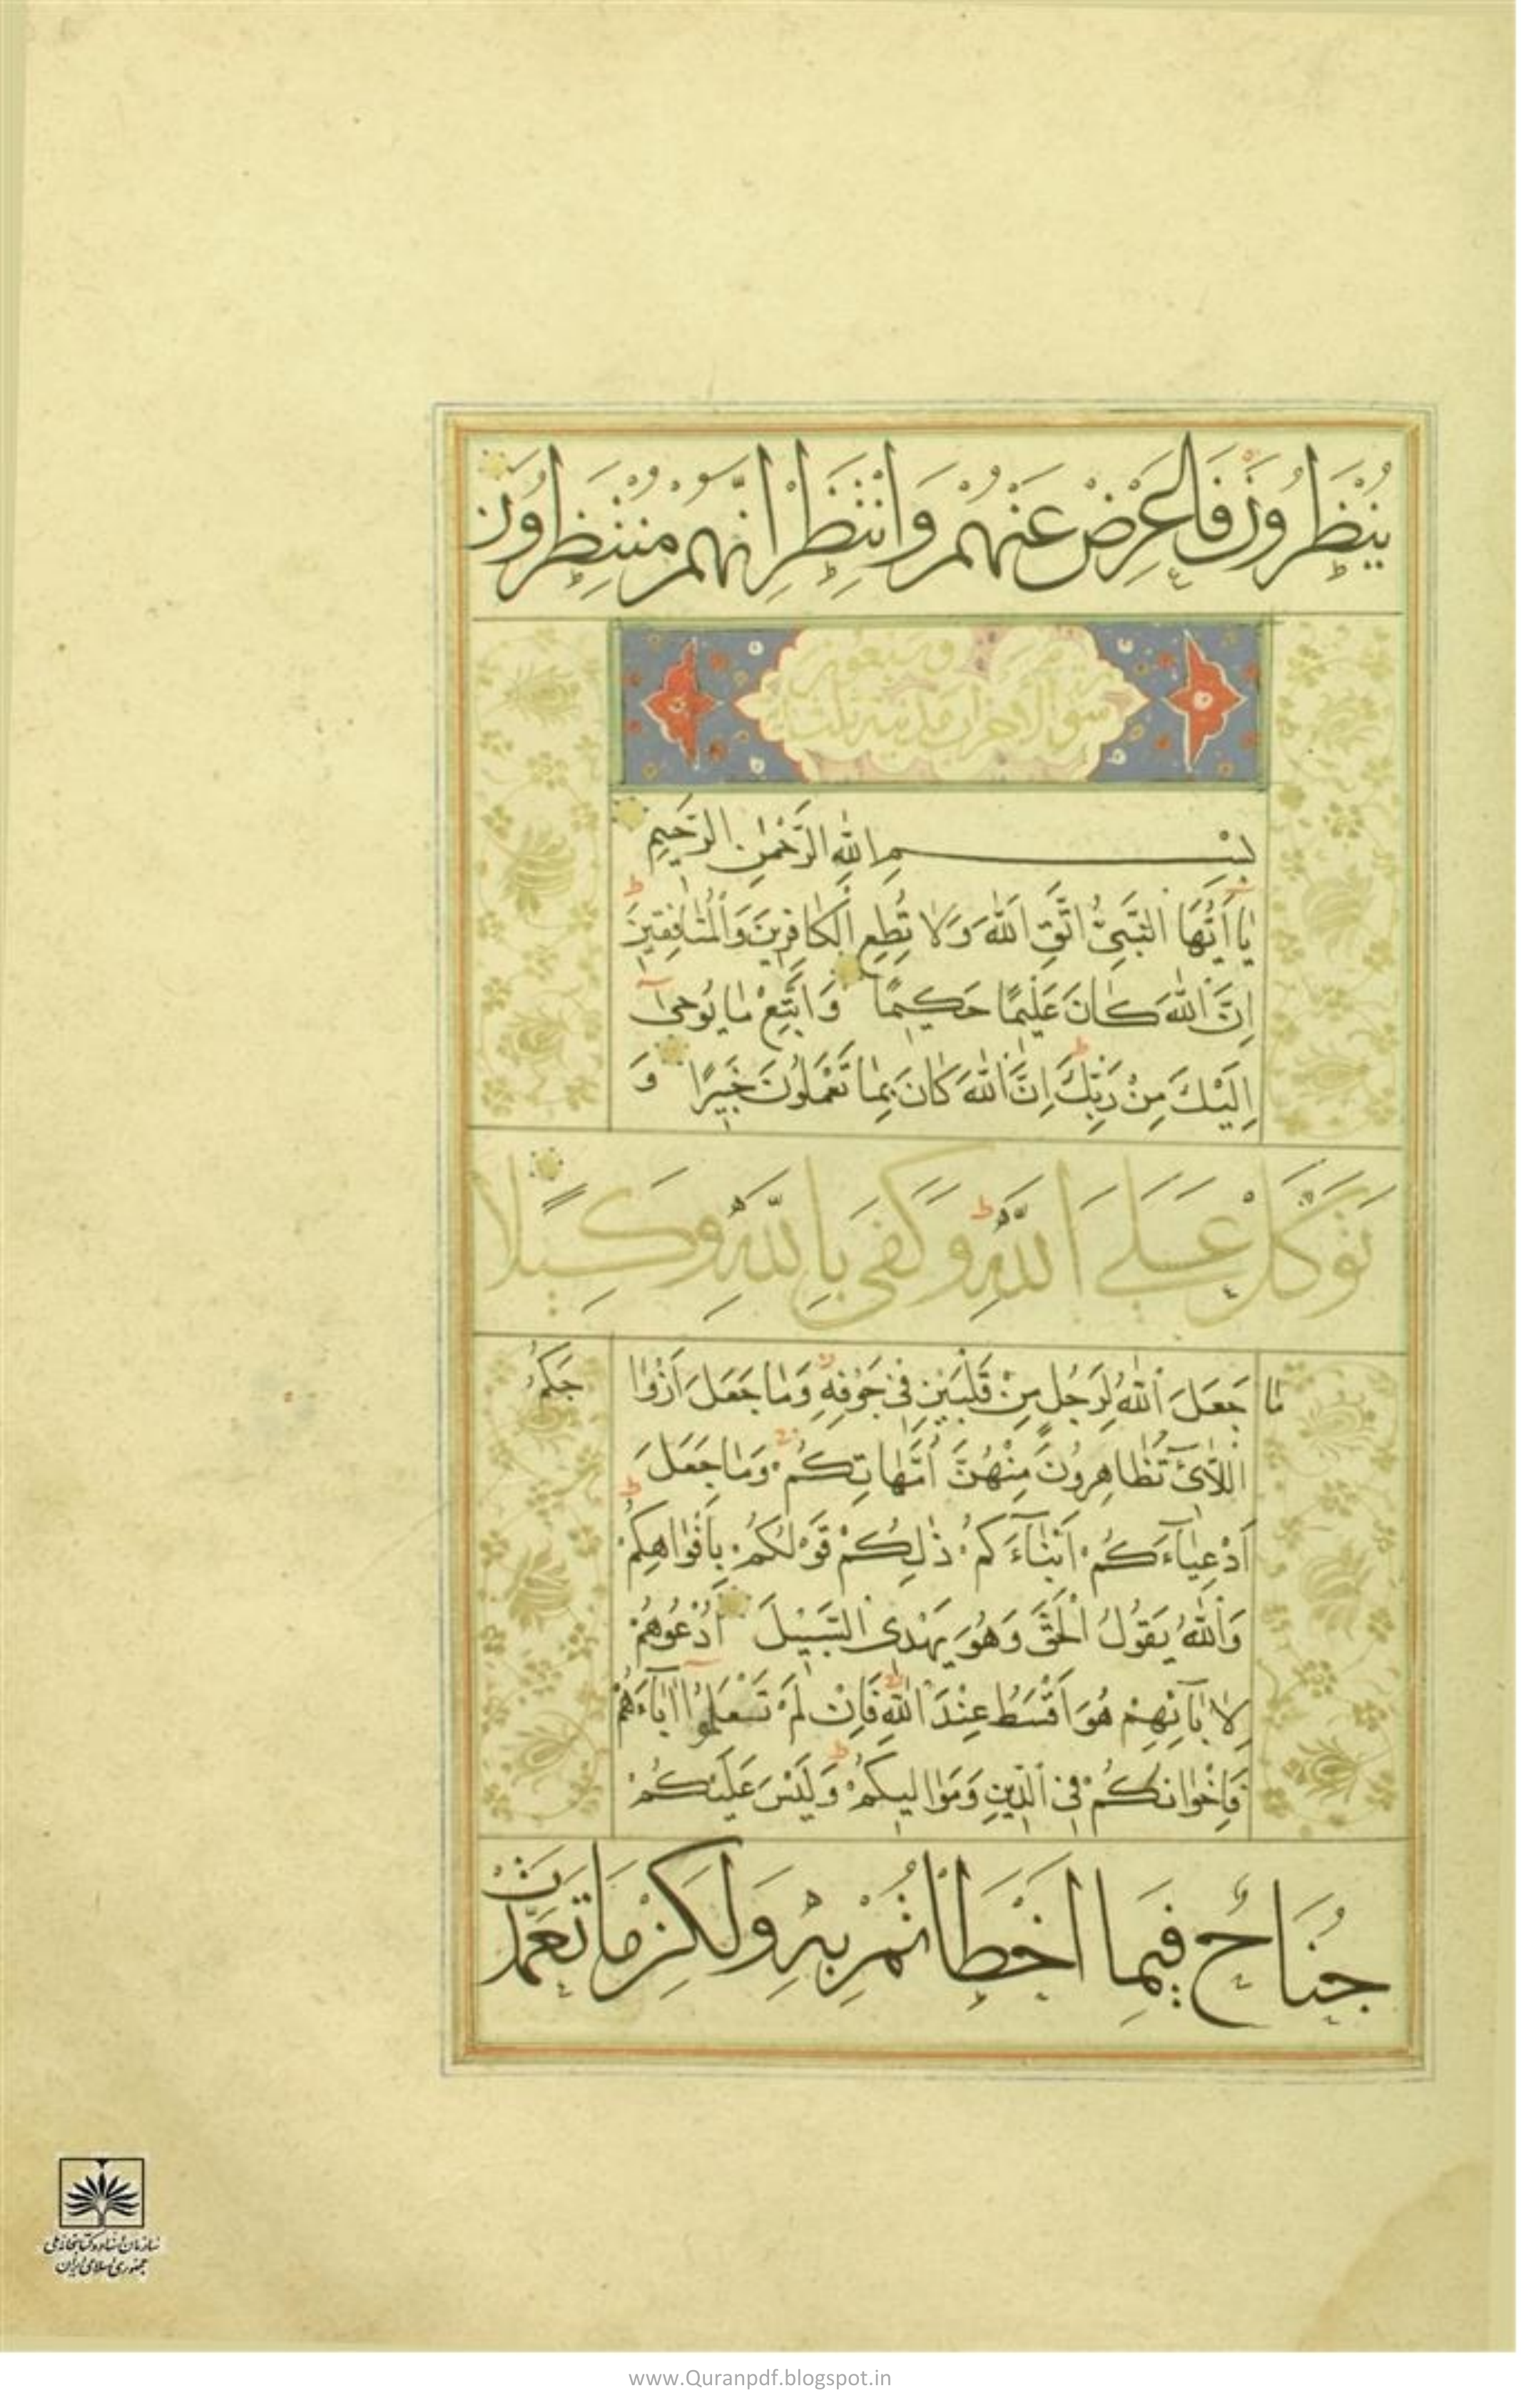 يُنْظَرُونَ فَاَعْرِضْ عَنْهُمْ وَانْتَظِرْ اِنَّهُمْ مُنْتَظِرُونَ
سورة الاحزاب مدنية ثلث
وسبعون
بِسْمِ اللّٰهِ الرَّحْمٰنِ الرَّحِيمِ
يٰٓا اَيُّهَا النَّبِىُّ اتَّقِ اللّٰهَ وَلَا تُطِعِ الْكَافِرِينَ وَالْمُنَافِقِينَ ط
اِنَّ اللّٰهَ كَانَ عَلِيمًا حَكِيمًا وَاتَّبِعْ مَا يُوحٰىٓ
اِلَيْكَ مِنْ رَبِّكَ ط اِنَّ اللّٰهَ كَانَ بِمَا تَعْمَلُونَ خَبِيرًا وَ
تَوَكَّلْ عَلَى اللّٰهِ ط وَكَفٰى بِاللّٰهِ وَكِيلًا
مَا جَعَلَ اللّٰهُ لِرَجُلٍ مِنْ قَلْبَيْنِ فِى جَوْفِهِ وَمَا جَعَلَ اَزْوَا جَكُمُ
اللَّائِ تُظَاهِرُونَ مِنْهُنَّ اُمَّهَاتِكُمْ وَمَا جَعَلَ
اَدْعِيَآءَكُمْ اَبْنَآءَكُمْ ط ذٰلِكُمْ قَوْلُكُمْ بِاَفْوَاهِكُمْ
وَاللّٰهُ يَقُولُ الْحَقَّ وَهُوَ يَهْدِى السَّبِيلَ اُدْعُوهُمْ
لِاٰبَآئِهِمْ هُوَ اَقْسَطُ عِنْدَ اللّٰهِ فَاِنْ لَمْ تَعْلَمُوٓا اٰبَآءَهُمْ
فَاِخْوَانُكُمْ فِى الدِّينِ وَمَوَالِيكُمْ ط وَلَيْسَ عَلَيْكُمْ
جُنَاحٌ فِيمَا اَخْطَاْتُمْ بِهِ وَلٰكِنْ مَا تَعَمَّدَتْ
سازمان اسناد و کتابخانه ملی
جمهوری اسلامی ایران
www.Quranpdf.blogspot.in